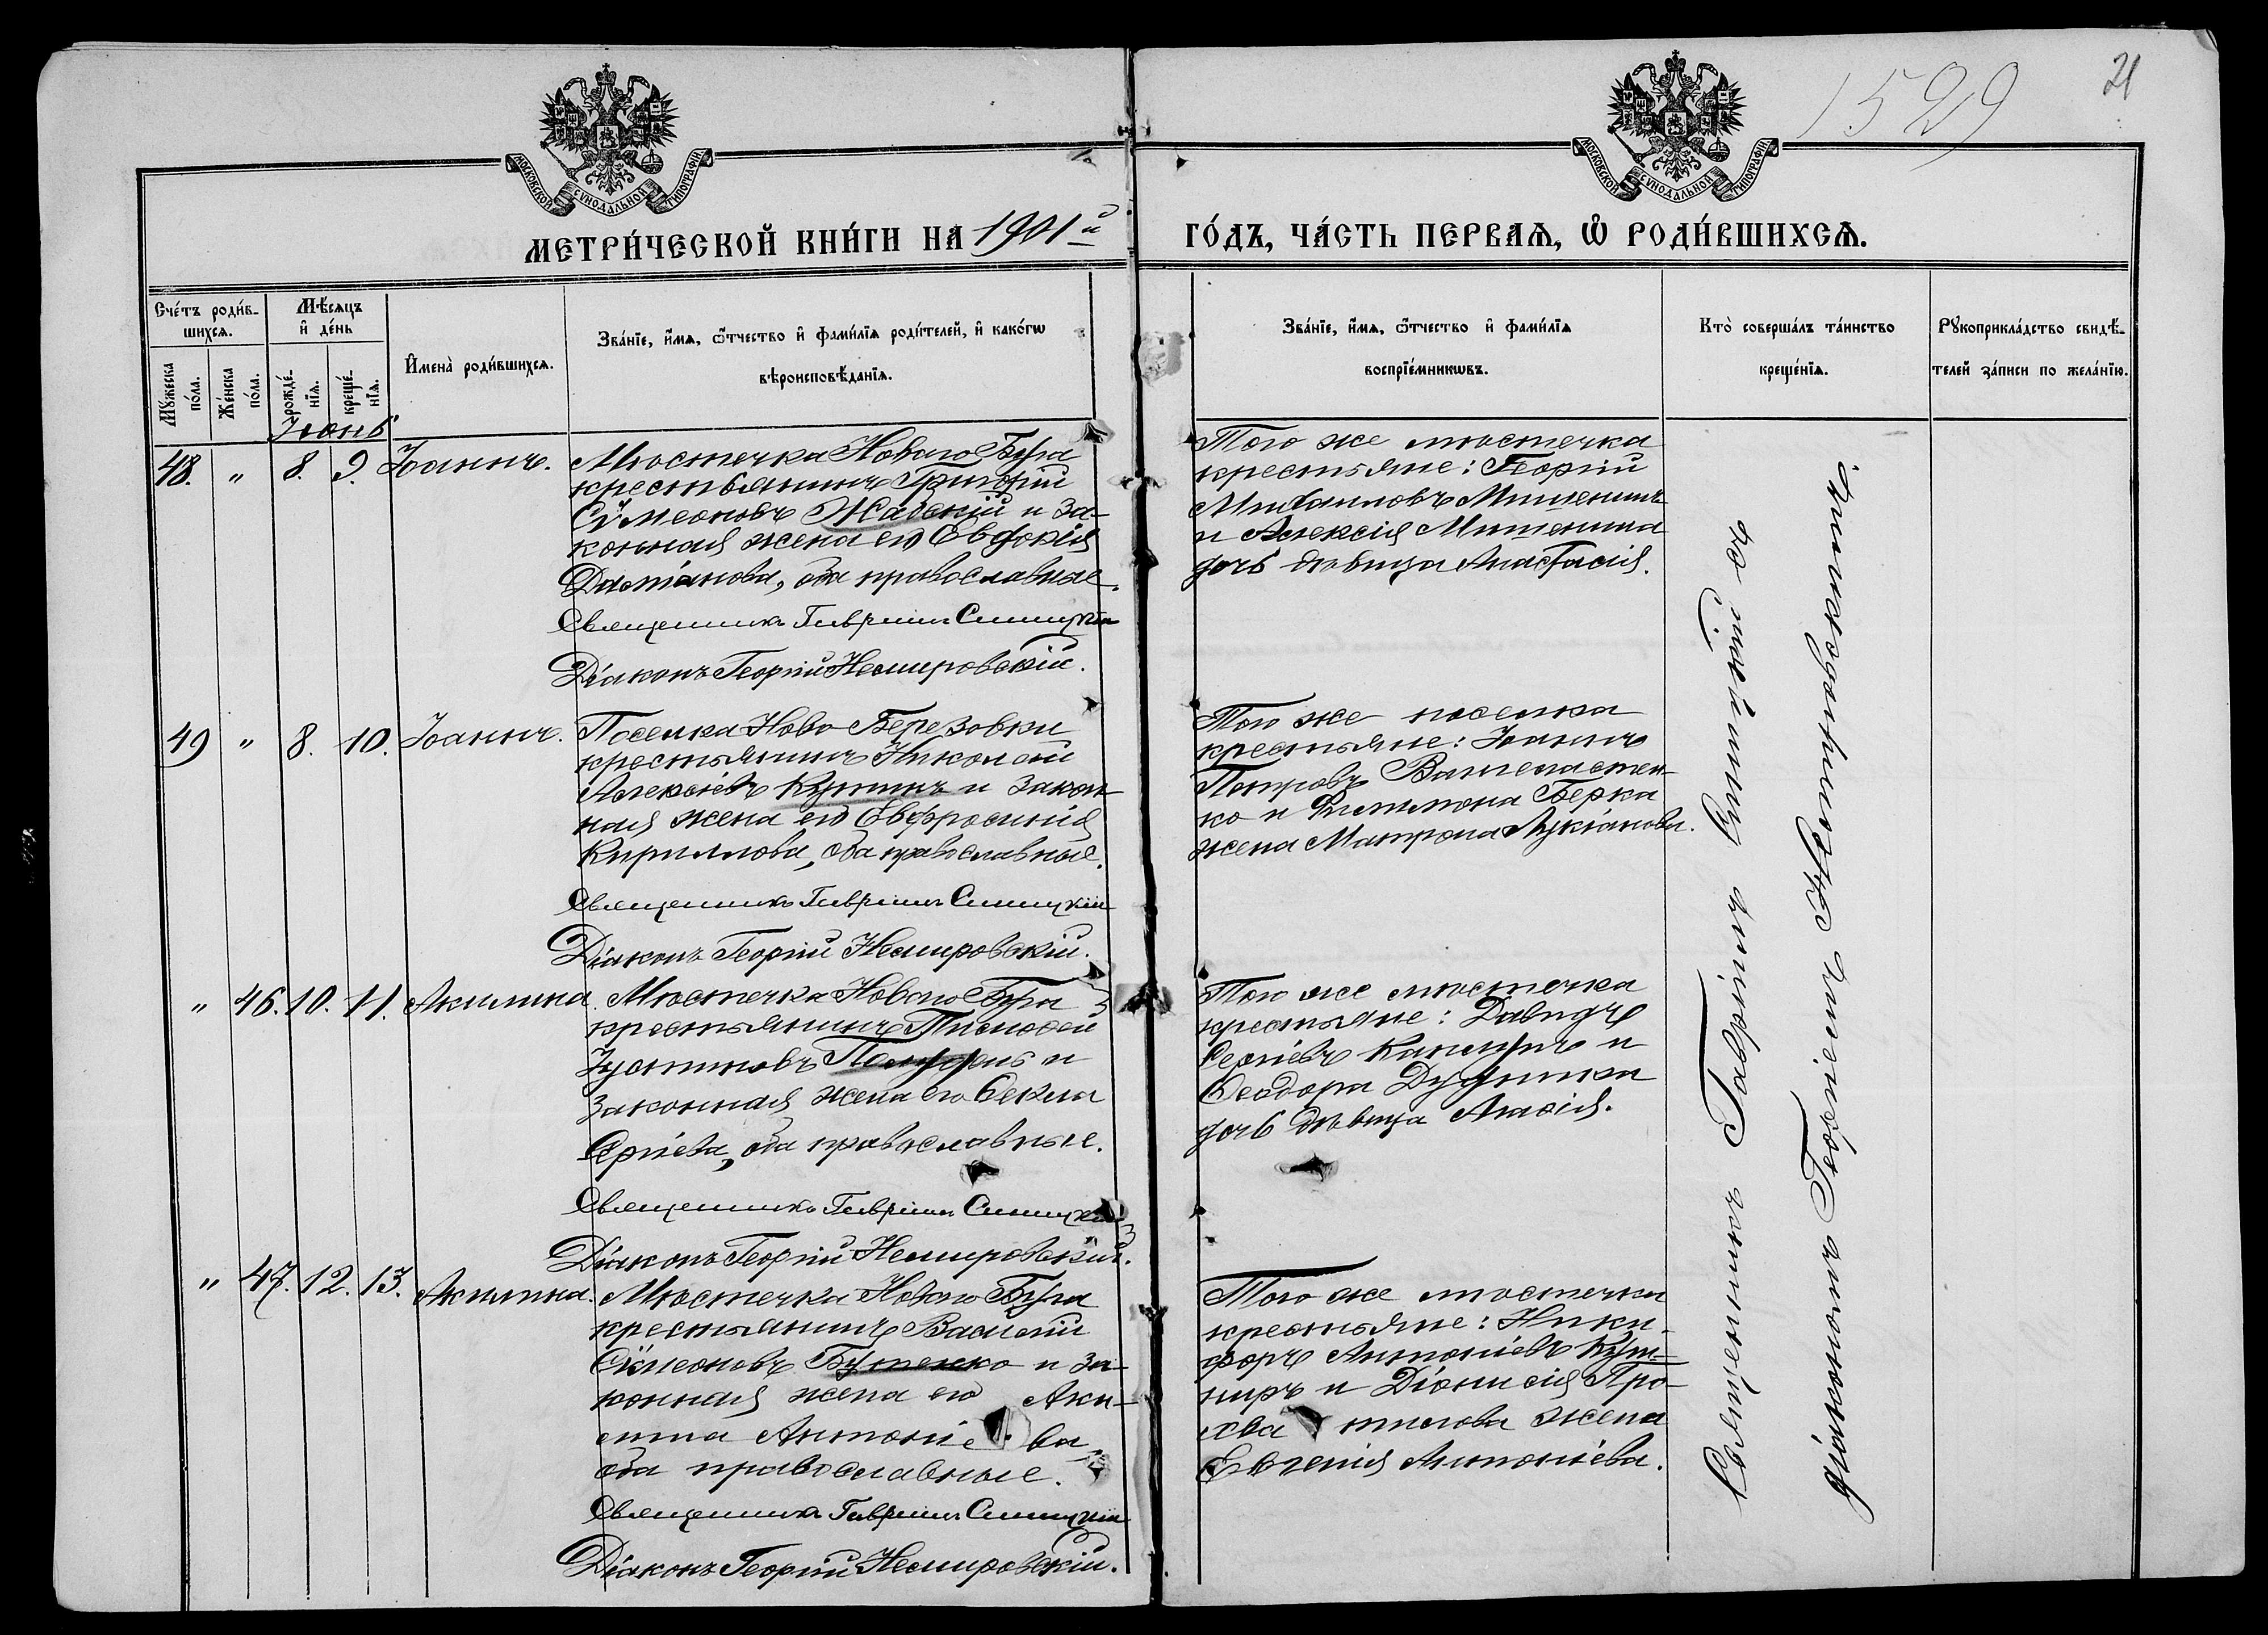 1529
21
МОСКОВСКОЙ СѴНОДАЛЬНОЙ ТИПОГРАФІИ.
МОСКОВСКОЙ СѴНОДАЛЬНОЙ ТИПОГРАФІИ.
МЕТРИ́ЧЕСКОЙ КНИ́ГИ НА 1901й ГО́ДЪ, ЧА́СТЬ ПЕРВАѦ, Ѡ҆ РОДИ́ВШИХСѦ.
Сче́тъ роди́в-
шихсѧ.
Мꙋ́жеска
по́ла.
Же́нска
по́ла.
Мѣ́сѧцъ
и҆ де́нь
рожде́-
нїѧ.
креще́-
нїѧ.
И҆мена̀ роди́вшихсѧ.
Зва́нїе, и҆́мѧ, ѻ҆́тчество и҆ фами́лїѧ роди́телей, и҆ како́гѡ
вѣроисповѣ́данїѧ.
Зва́нїе, и҆́мѧ, ѻ҆́тчество и҆ фами́лїѧ
воспрїе́мникѡвъ.
Кто̀ соверша́лъ та́инство
креще́нїѧ.
Рꙋкоприкла́дство свидѣ́-
телей за́писи по жела́нїю.
Іюнь
48. " 8. 9. Іоаннъ.
Мѣстечка Новаго Буга
крестьянинъ Григорій
Сѵмеоновъ и за-
конная жена его Евдокія
Даміанова, оба православные.
Священникъ Гавріилъ Синицкій
Діаконъ Георгій Немировскій.
Того же мѣстечка
крестьяне: Георгій
Михаиловъ Мишенинъ
и Алексія Мишенина
дочь дѣвица Анастасія.
49 " 8. 10. Іоаннъ.
Поселка Ново-Березовки
крестьянинъ Николай
Алексіевъ и закон-
ная жена его Евфросинія
Кириллова, оба православные.
Священникъ Гавріилъ Синицкій
Діаконъ Георгій Немировскій.
Того же поселка
крестьяне: Іоаннъ
Петровъ
ко и Филимона Берка
жена Матрона Лукіанова.
" 46. 10. 11. Акилина.
Мѣстечка Новаго Буга
крестьянинъ Тимоѳей
Іустиновъ и
законная жена его Ѳекла
Сергіева, оба православные.
Священникъ Гавріилъ Синицкій
Діаконъ Георгій Немировскій.
Того же мѣстечка
крестьяне: Давидъ
Сергіевъ и
Ѳеодора Дудника
дочь дѣвица Анасія.
" 47. 12. 13. Акилина.
Мѣстечка Новаго Буга
крестьянинъ Василій
Сѵмеоновъ Бутенко и за-
конная жена его Аки-
лина Антоніева,
оба православные.
Священникъ Гавріилъ Синицкій
Діаконъ Георгій Немировскій.
Того же мѣстечка
крестьяне: Ники-
форъ Антоніевъ Куш-
ниръ и Діонисія Про-
хватилова жена
Евгенія Антоніева.
Священникъ Гавріилъ Синицкій съ
діакономъ Георгіемъ Немировскимъ.